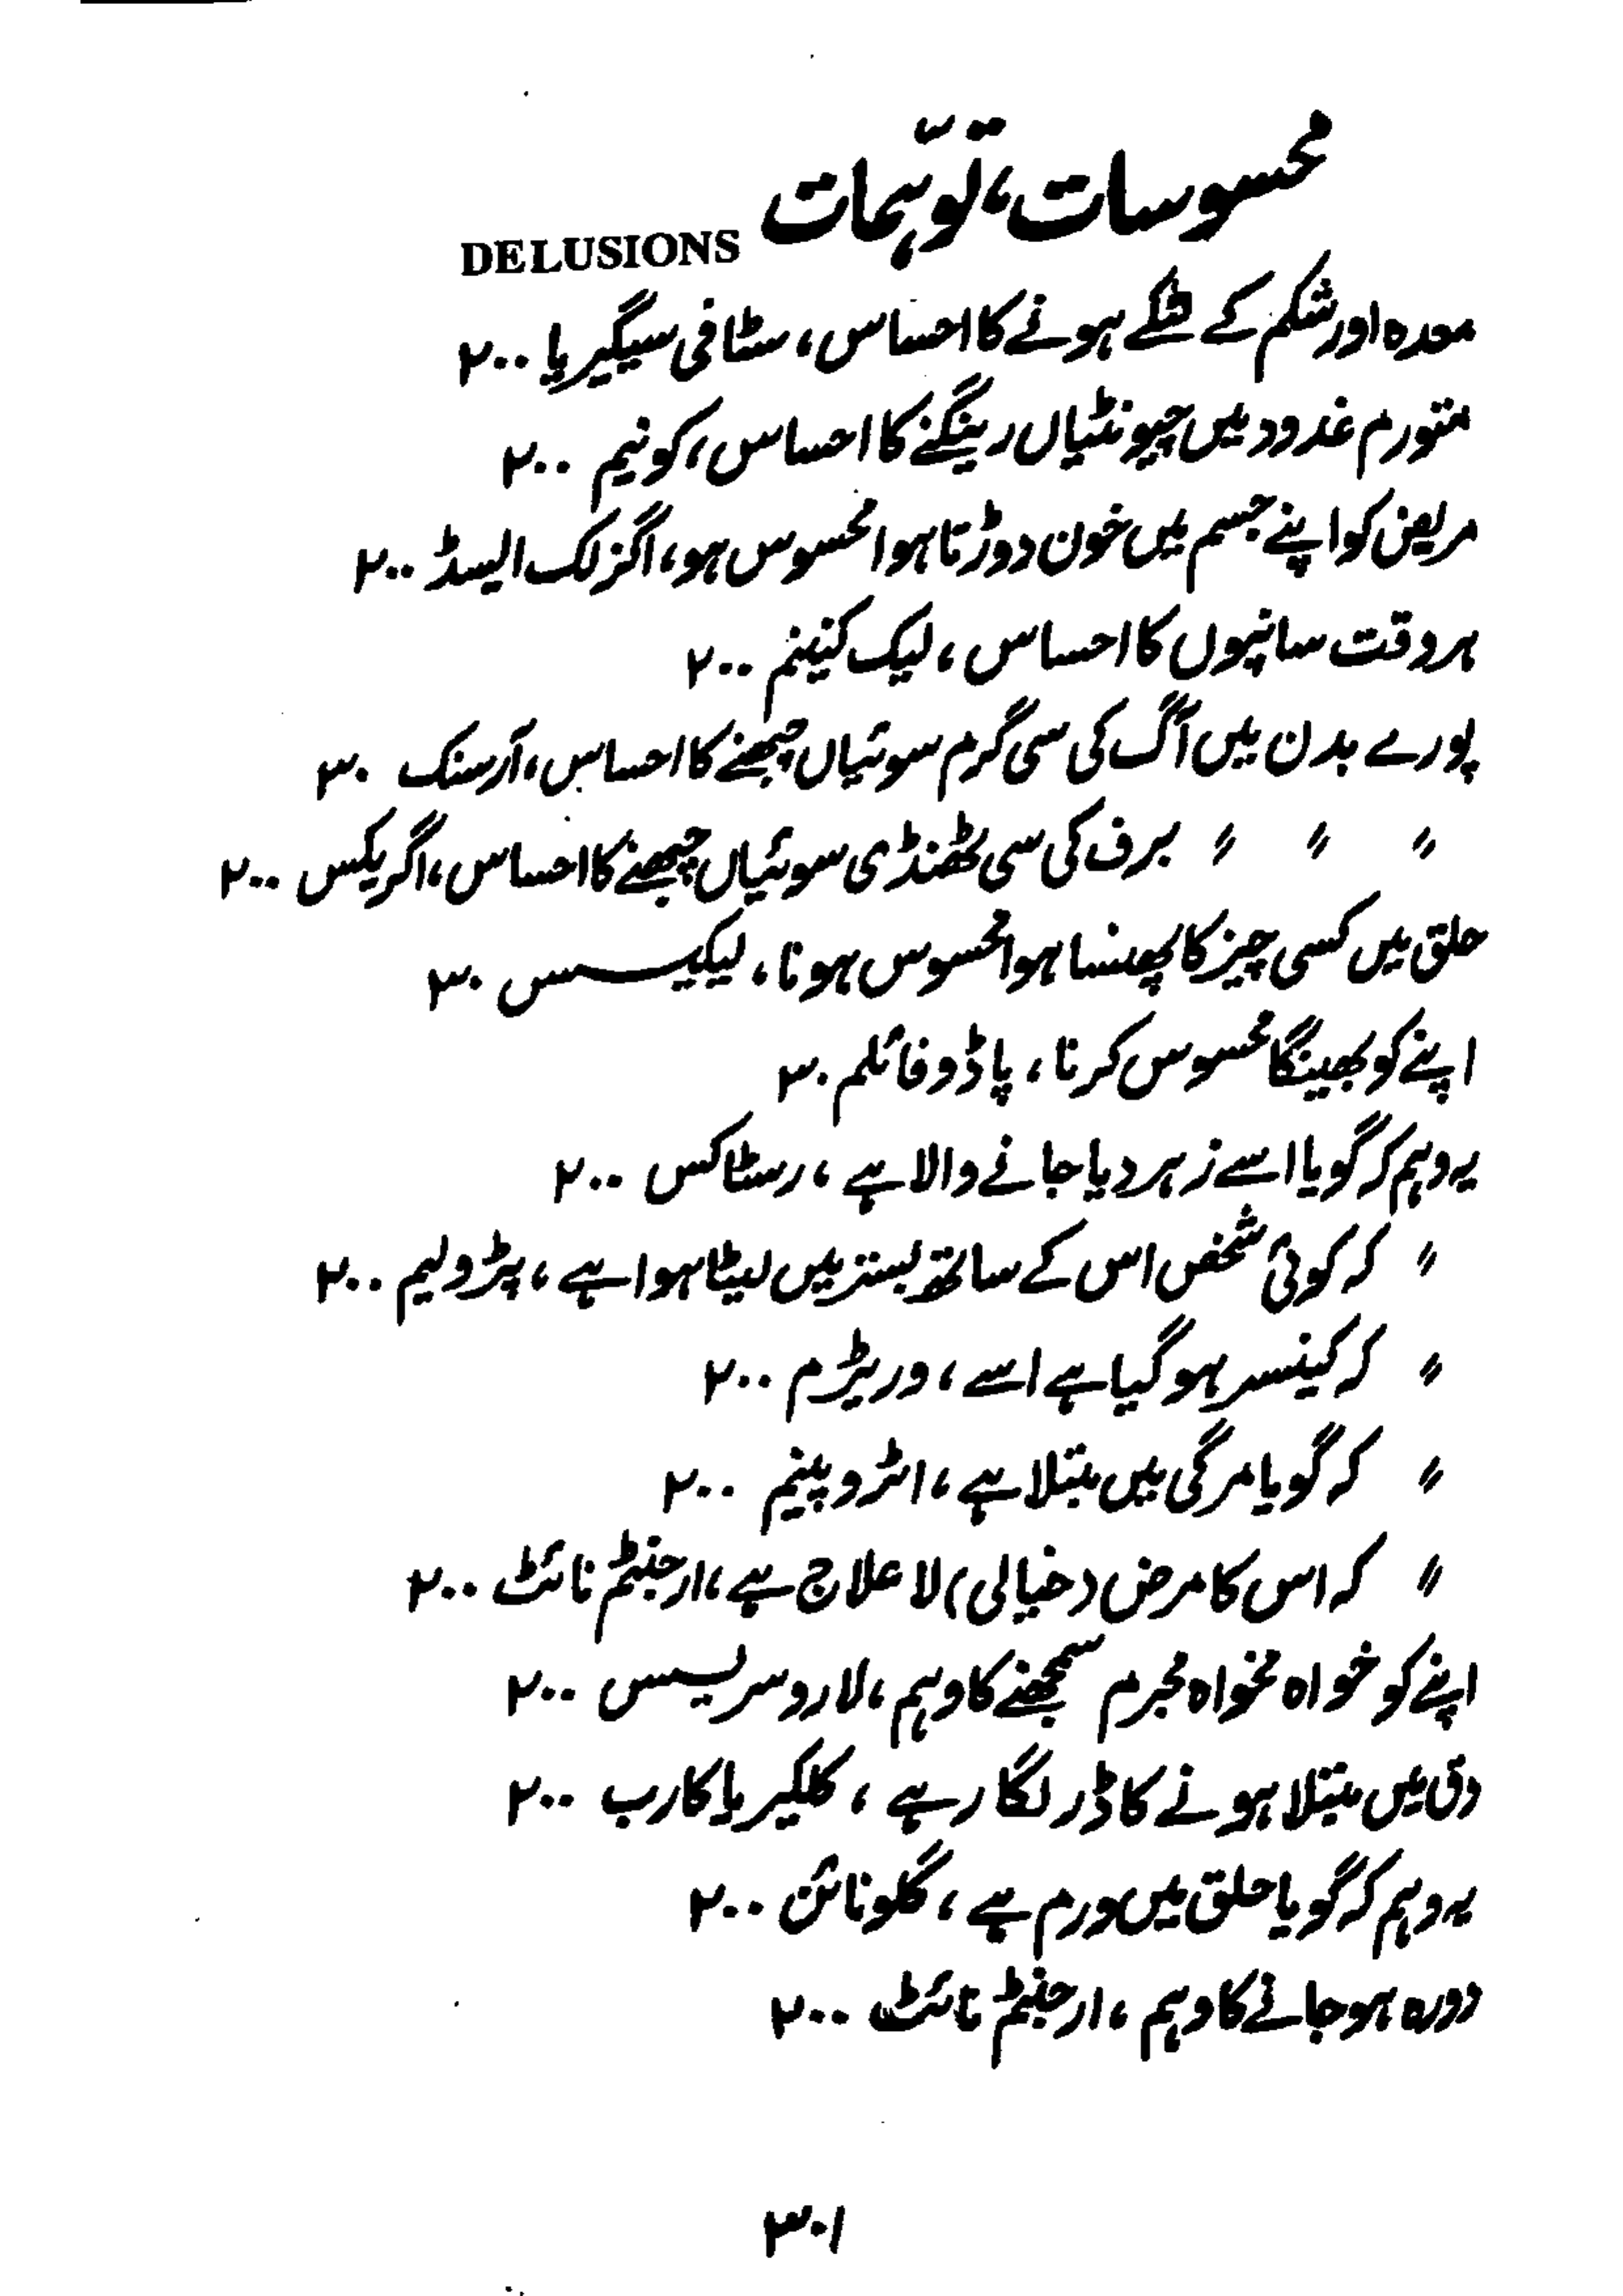 محسوسات، توہّمات DELUSIONS
معدہ اور شکم کے لٹکے ہونے کا احساس، سٹافی سیگیریا ۲۰۰
متورم غدود میں چیونٹیاں رینگنے کا احساس، کونیم ۲۰۰
مریض کو اپنے جسم میں خون دوڑتا ہوا محسوس ہو، اگزلک ایسڈ ۲۰۰
ہر وقت سانپوں کا احساس، لیک کینینم ۲۰۰
پورے بدن میں آگ کی سی گرم سوئیاں چبھنے کا احساس، آرسنک ۳۰
〃 〃 〃 برف کی سی ٹھنڈی سوئیاں چبھنے کا احساس، اگریکس ۲۰۰
حلق میں کسی چیز کا پھنسا ہوا محسوس ہونا، لیکیسس ۳۰
اپنے کو بھینگا محسوس کرنا، پاڈوفائلم ۳۰
یہ وہم کہ گویا اسے زہر دیا جانے والا ہے، رسٹاکس ۲۰۰
〃 کہ کوئی شخص اس کے ساتھ بستر میں لیٹا ہوا ہے، پٹرولیم ۲۰۰
〃 کہ کینسر ہو گیا ہے اسے، وریٹرم ۲۰۰
〃 کہ گویا مرگی میں مبتلا ہے، اٹروپینم ۲۰۰
〃 کہ اس کا مرض (خیالی) لا علاج ہے، ارجنٹم نائٹ ۲۰۰
اپنے کو خواہ مخواہ مجرم سمجھنے کا وہم، لاروسریسس ۲۰۰
دق میں مبتلا ہونے کا ڈر لگا رہے، کلکیریا کارب ۲۰۰
یہ وہم کہ گویا حلق میں ورم ہے، گلونائن ۲۰۰
دورہ ہو جانے کا وہم، ارجنٹم نائٹ ۲۰۰
۳۰۱